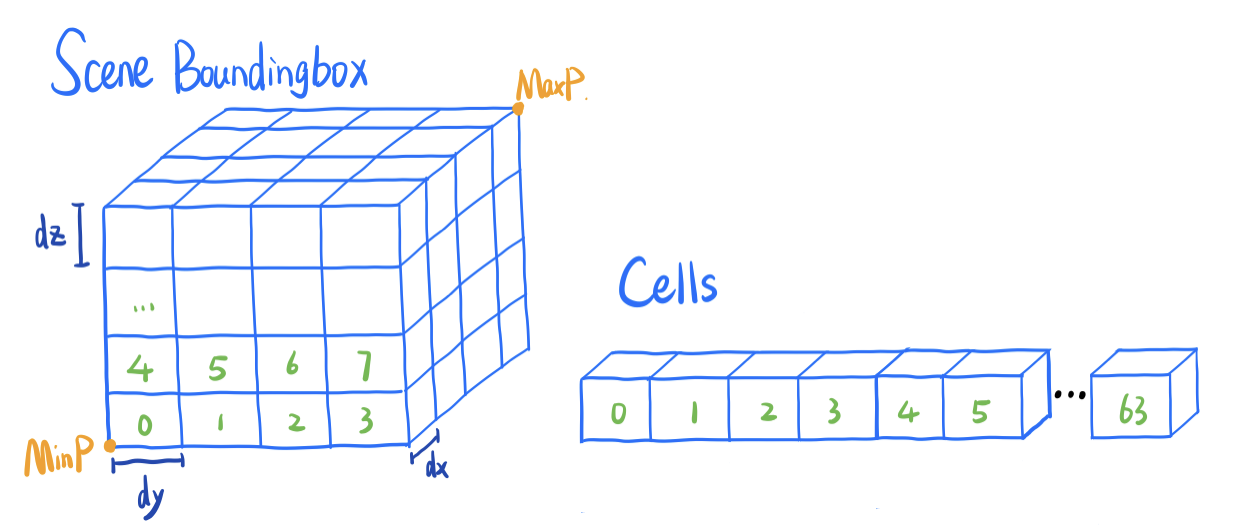 Scene Boundingbox
MaxP.
dz
...
4 5 6 7
0 1 2 3
MinP
dy
dx
Cells
0 1 2 3 4 5 ... 63